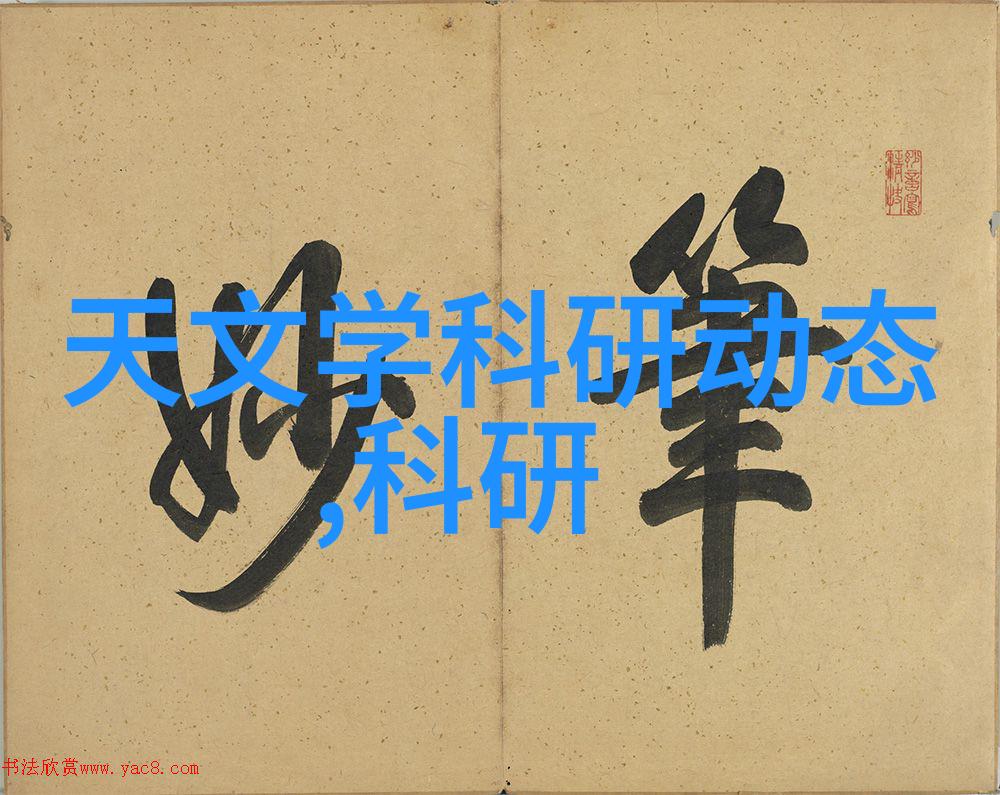 天文学科研动态
,科研
妙筆
书法欣赏www.yac8.com